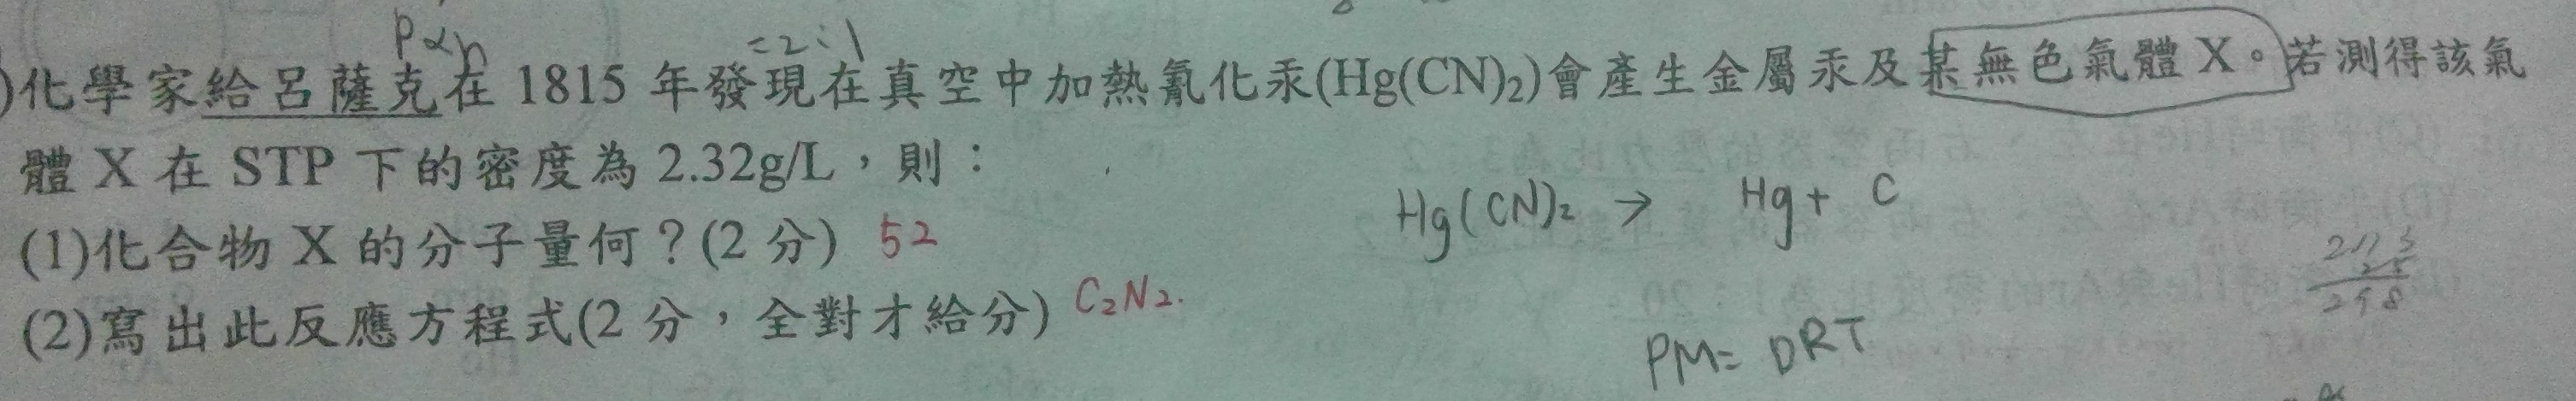 P∝n
=2:1
)化學家給呂薩克在 1815 年發現在真空中加熱氰化汞(Hg(CN)₂)會產生金屬汞及某無色氣體 X。若測得該氣
體 X 在 STP 下的密度為 2.32g/L，則：
Hg(CN)₂ → Hg + C
(1)化合物 X 的分子量何？(2 分) 52
(2)寫出此反應方程式(2 分，全對才給分) C₂N₂.
PM= DRT